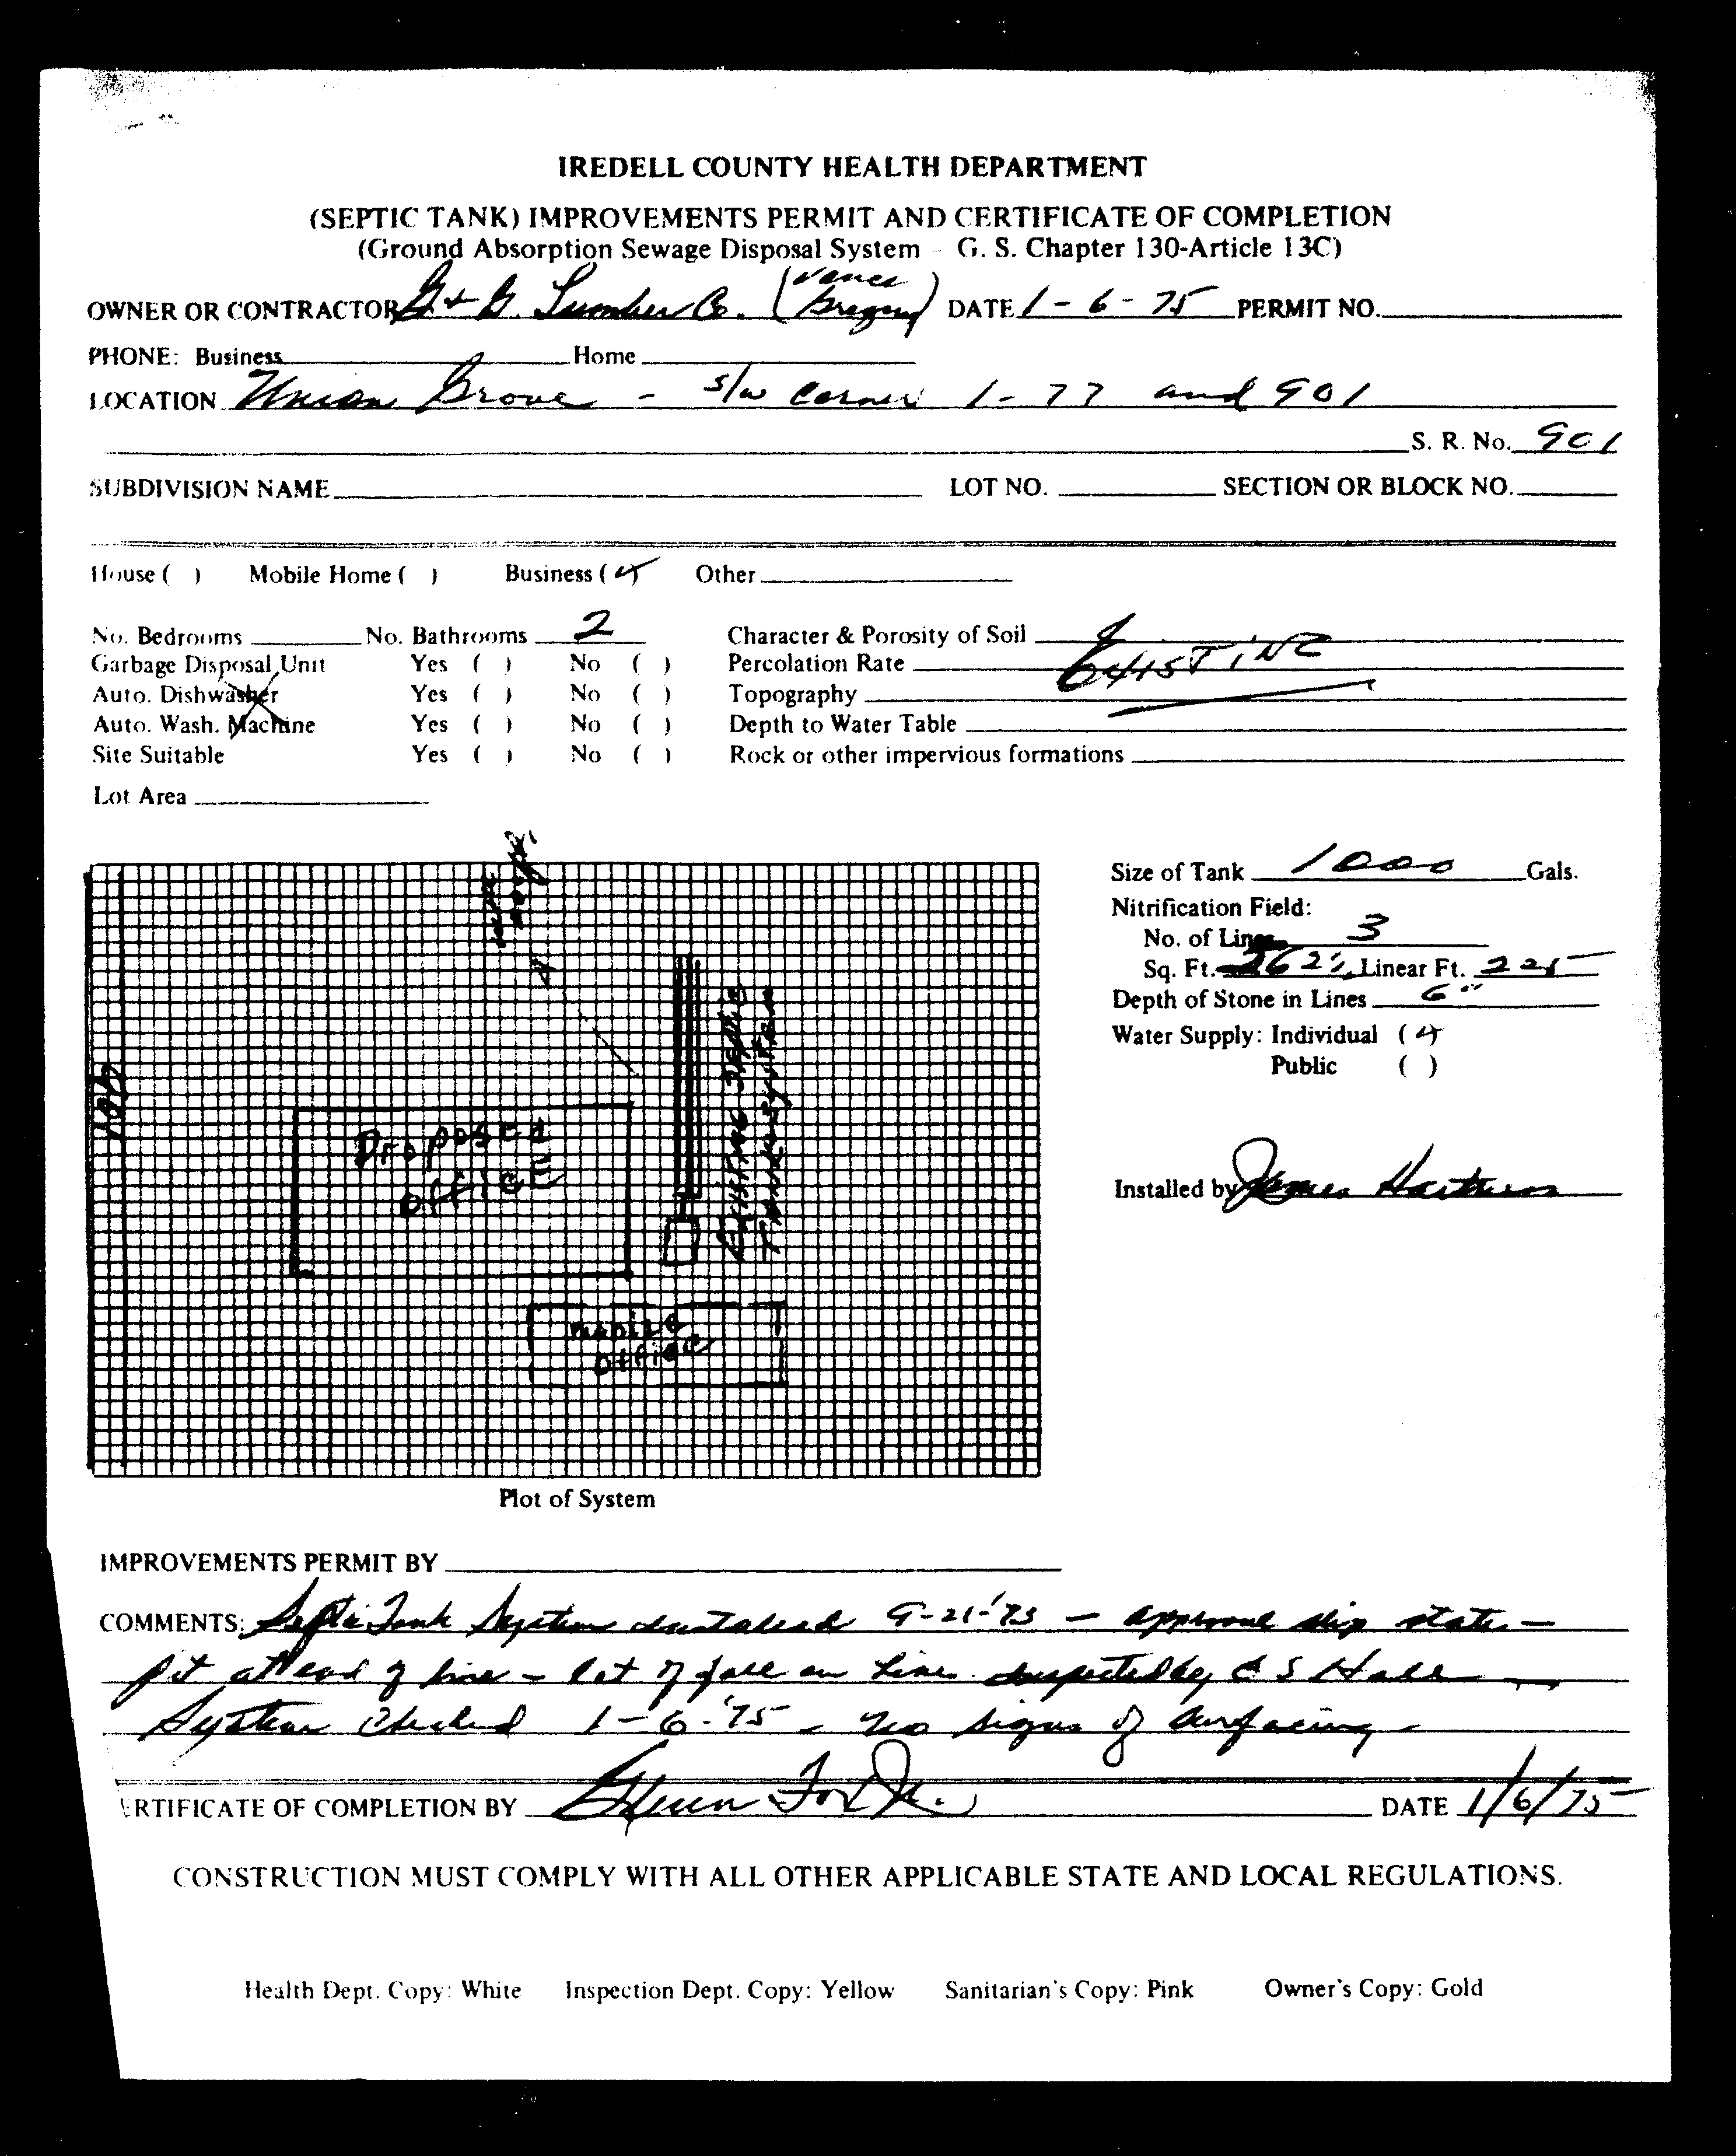 IREDELL COUNTY HEALTH DEPARTMENT
(SEPTIC TANK) IMPROVEMENTS PERMIT AND CERTIFICATE OF COMPLETION
(Ground Absorption Sewage Disposal System - G. S. Chapter 130-Article 13C)
OWNER OR CONTRACTOR G & G. Lumber Co. (Vance Gregory) DATE 1-6-75 PERMIT NO.
PHONE: Business Home
LOCATION Union Grove - s/w corner I-77 and 901
S. R. No. 901
SUBDIVISION NAME LOT NO. SECTION OR BLOCK NO.
House ( ) Mobile Home ( ) Business (✓) Other
No. Bedrooms No. Bathrooms 2 Character & Porosity of Soil
Garbage Disposal Unit Yes ( ) No ( ) Percolation Rate EXISTING
Auto. Dishwasher Yes ( ) No ( ) Topography
Auto. Wash. Machine Yes ( ) No ( ) Depth to Water Table
Site Suitable Yes ( ) No ( ) Rock or other impervious formations
Lot Area
Size of Tank 1000 Gals.
Nitrification Field:
No. of Lines 3
Sq. Ft. Linear Ft. 225
Depth of Stone in Lines 6"
Water Supply: Individual (✓)
Public ( )
Installed by James
901
Proposed
office
EXISTING Septic
TANK System
mobile
office
Plot of System
IMPROVEMENTS PERMIT BY
COMMENTS: Septic Tank System installed 9-21-'73 - approval slip states -
pit at end of line - lot of fall on lines. Inspected by C S Hall
System Checked 1-6-'75 - no signs of surfacing -
ERTIFICATE OF COMPLETION BY Glenn Fox Jr. DATE 1/6/75
CONSTRUCTION MUST COMPLY WITH ALL OTHER APPLICABLE STATE AND LOCAL REGULATIONS.
Health Dept. Copy: White Inspection Dept. Copy: Yellow Sanitarian's Copy: Pink Owner's Copy: Gold